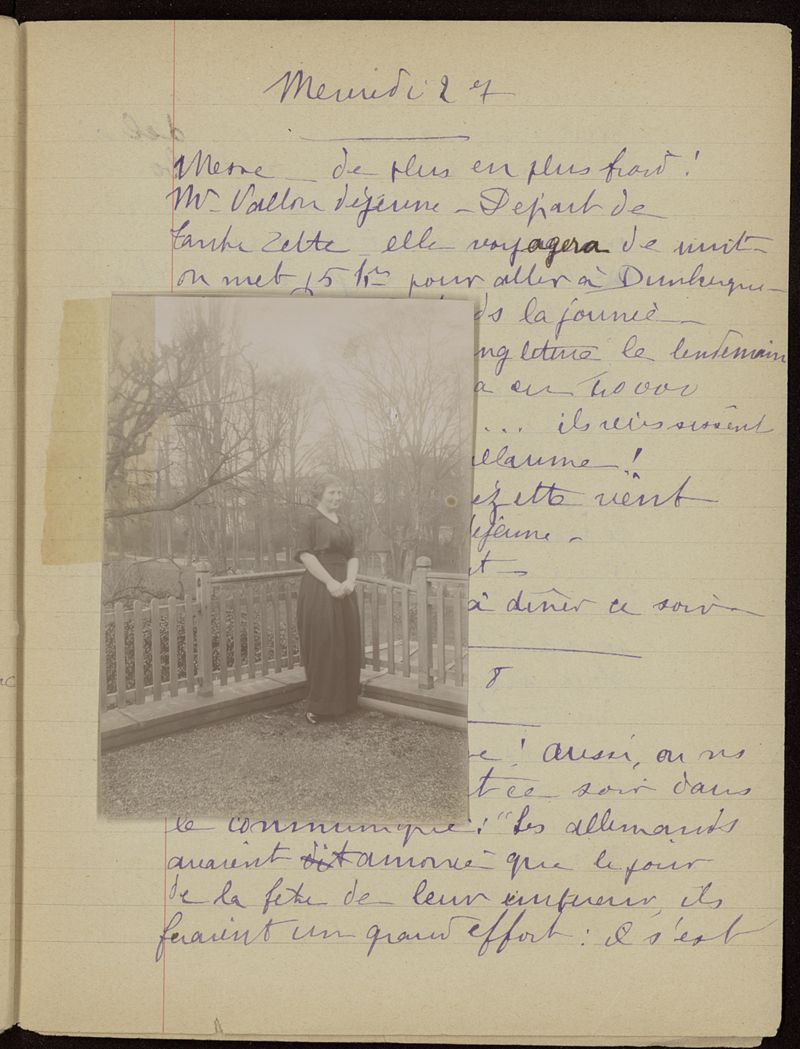 Mercredi 27
Messe _ de plus en plus froid !
Mr Vallon déjeune _ Départ de
Tante Zette _ elle voyagera de nuit _
on met 15 hrs pour aller à Dunkerque _
ds la journée _
le lendemain
a eu 40 000
... ils réussissent
uillaume !
ézette vient
déjeune _
t _
à dîner ce soir _
8
e ! aussi, on ns
t ce soir dans
le communiqué : "Les allemands
avaient dit annoncé que le jour
de la fête de leur empereur, ils
feraient un grand effort : il s'est